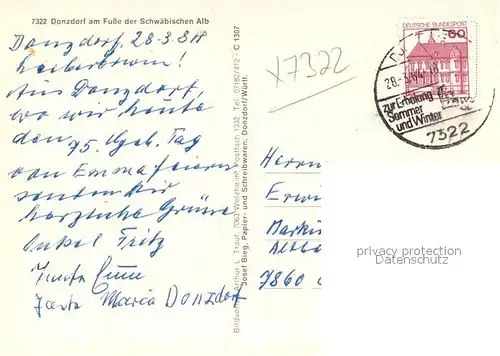 7322 Donzdorf am Fuße der Schwäbischen Alb
Donzdorf, 28.3.84
Aus Donzdorf,
wo wir heute
den 75. Geb. Tag
von Emma feiern
senden wir
herzliche Grüße
Onkel Fritz
Tante Emma
Tante Maria Donzdorf
Bildverlag Arthur L. Traut, 7063 Welzheim, Postfach 1332, Tel. 07182/412 - C 1307
Josef Bieg, Papier- und Schreibwaren, Donzdorf/Württ.
x7322
DEUTSCHE BUNDESPOST
60
28.-3.84-18
zur Erholung
Sommer
und Winter
7322
Herrn
Erwi
7860
privacy protection
VERITAS